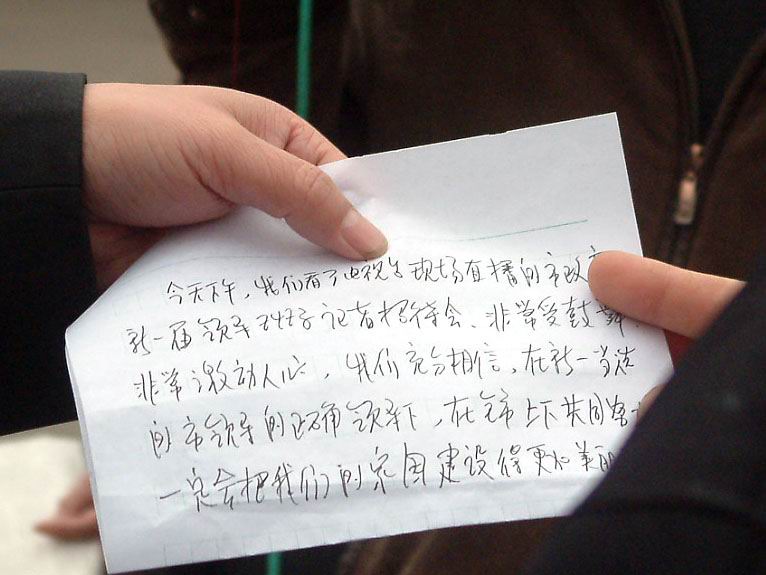 今天下午,我们看了电视台现场直播的市政府
新一届领导班子记者招待会、非常受鼓舞,
非常激动人心,我们充分相信,在新一当选
的市领导的正确领导下,在全市上下共同努
一定会把我们的家园建设得更加美丽